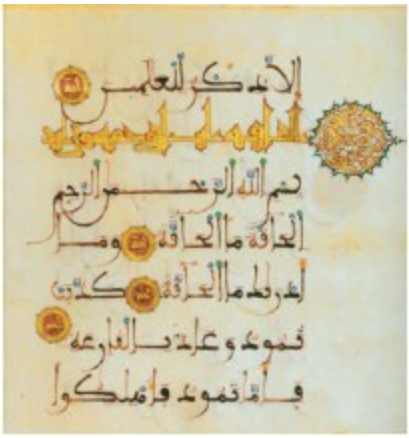 الا ذكر للعلمين
بسم الله الرحمن الرحيم
الحاقة ما الحاقة وما
ادريك ما الحاقة كذبت
ثمود وعاد بالقارعة
فاما ثمود فاهلكوا